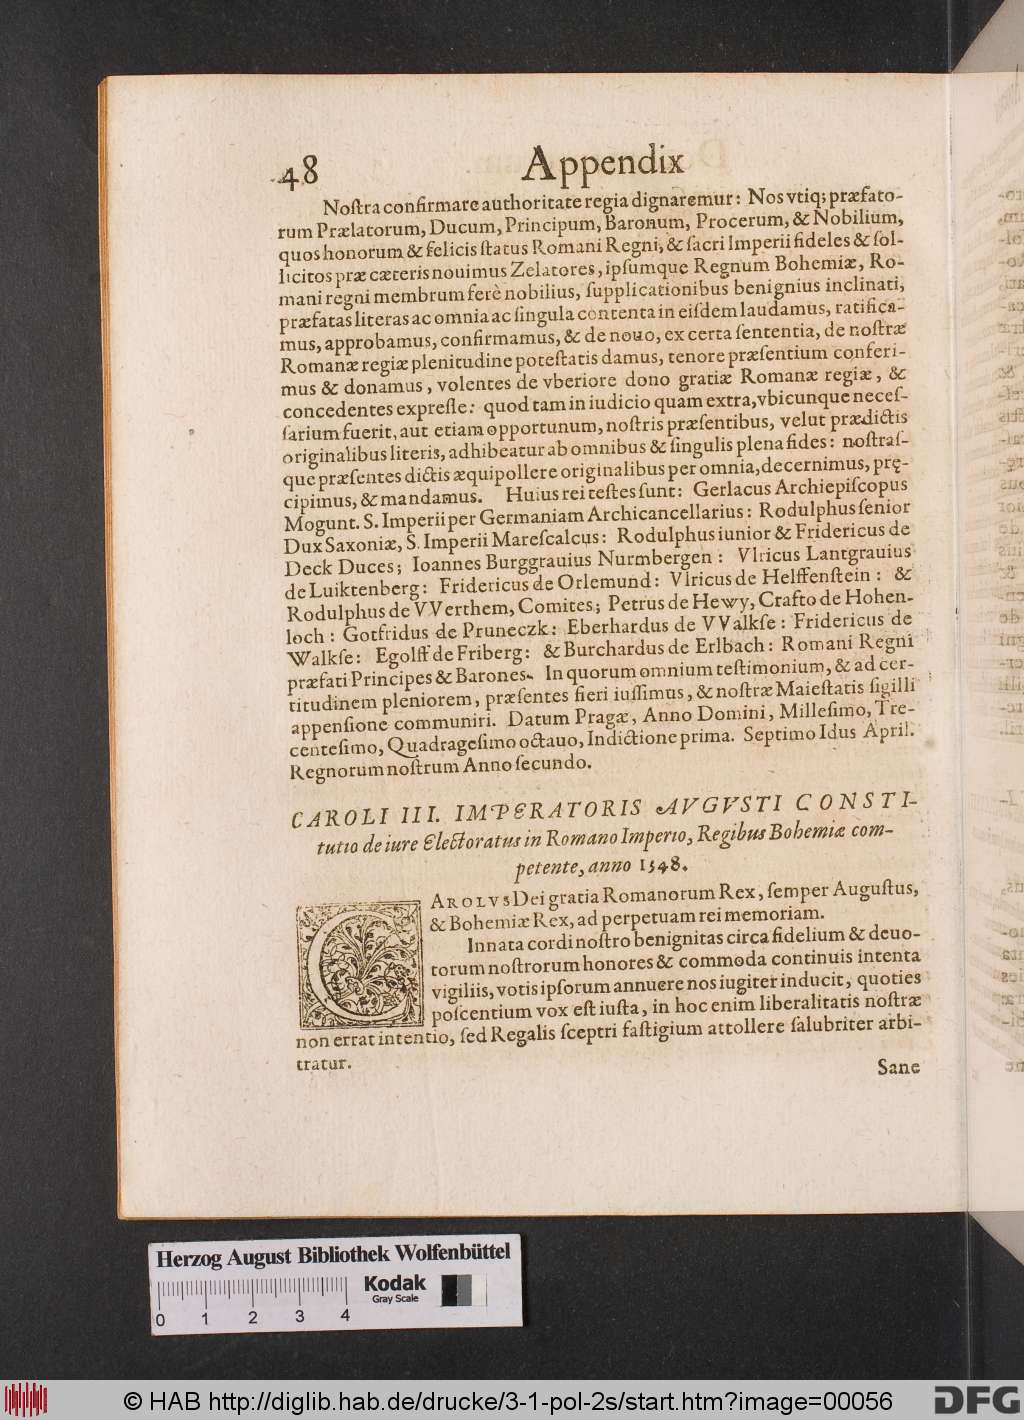 48 Appendix
Noſtra confirmare authoritate regia dignaremur: Nos vtiq; præfato-
rum Prælatorum, Ducum, Principum, Baronum, Procerum, & Nobilium,
quos honorum & felicis ſtatus Romani Regni, & ſacri Imperii fideles & ſol-
licitos præ cæteris nouimus Zelatores, ipſumque Regnum Bohemiæ, Ro-
mani regni membrum ferè nobilius, ſupplicationibus benignius inclinati,
præfatas literas ac omnia ac ſingula contenta in eiſdem laudamus, ratifica-
mus, approbamus, confirmamus, & de nouo, ex certa ſententia, de noſtræ
Romanæ regiæ plenitudine poteſtatis damus, tenore præſentium conferi-
mus & donamus, volentes de vberiore dono gratiæ Romanæ regiæ, &
concedentes expreſſe: quod tam in iudicio quam extra, vbicunque neceſ-
ſarium fuerit, aut etiam opportunum, noſtris præſentibus, velut prædictis
originalibus literis, adhibeatur ab omnibus & ſingulis plena fides: noſtraſ-
que præſentes dictis æquipollere originalibus per omnia, decernimus, prę-
cipimus, & mandamus. Huius rei teſtes ſunt: Gerlacus Archiepiſcopus
Mogunt. S. Imperii per Germaniam Archicancellarius: Rodulphus ſenior
Dux Saxoniæ, S. Imperii Mareſcalcus: Rodulphus iunior & Fridericus de
Deck Duces; Ioannes Burggrauius Nurmbergen: Vlricus Lantgrauius
de Luiktenberg: Fridericus de Orlemund: Vlricus de Helffenſtein: &
Rodulphus de VVerthem, Comites; Petrus de Hewy, Crafto de Hohen-
loch: Gotfridus de Pruneczk: Eberhardus de VValkſe: Fridericus de
Walkſe: Egolff de Friberg: & Burchardus de Erlbach: Romani Regni
præfati Principes & Barones. In quorum omnium teſtimonium, & ad cer-
titudinem pleniorem, præſentes fieri iuſſimus, & noſtræ Maieſtatis ſigilli
appenſione communiri. Datum Pragæ, Anno Domini, Milleſimo, Tre-
centeſimo, Quadrageſimo octauo, Indictione prima. Septimo Idus April.
Regnorum noſtrum Anno ſecundo.
CAROLI III. IMPERATORIS AVGVSTI CONSTI-
tutio de iure Electoratus in Romano Imperio, Regibus Bohemiæ com-
petente, anno 1348.
CAROLVS Dei gratia Romanorum Rex, ſemper Auguſtus,
& Bohemiæ Rex, ad perpetuam rei memoriam.
Innata cordi noſtro benignitas circa fidelium & deuo-
torum noſtrorum honores & commoda continuis intenta
vigiliis, votis ipſorum annuere nos iugiter inducit, quoties
poſcentium vox eſt iuſta, in hoc enim liberalitatis noſtræ
non errat intentio, ſed Regalis ſceptri faſtigium attollere ſalubriter arbi-
tratur.
Sane
Herzog August Bibliothek Wolfenbüttel
Kodak
Gray Scale
0 1 2 3 4
© HAB http://diglib.hab.de/drucke/3-1-pol-2s/start.htm?image=00056
DFG